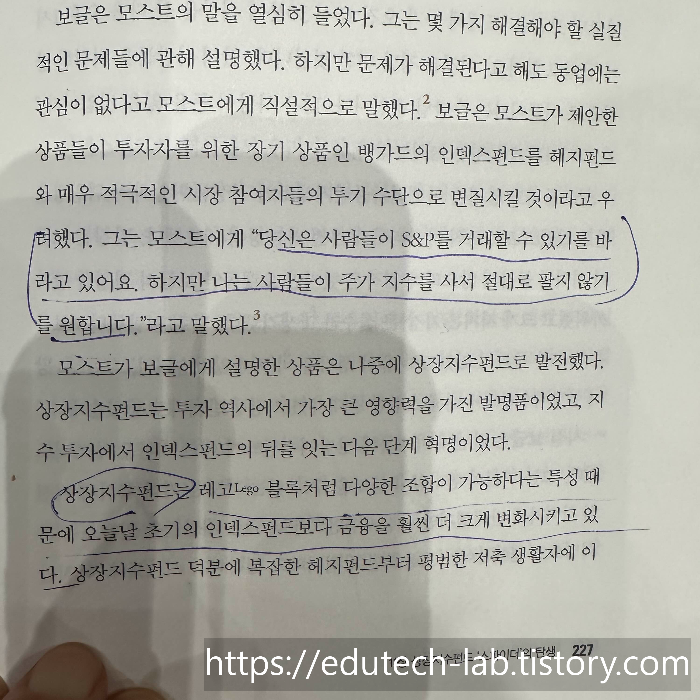 보글은 모스트의 말을 열심히 들었다. 그는 몇 가지 해결해야 할 실질
적인 문제들에 관해 설명했다. 하지만 문제가 해결된다고 해도 동업에는
관심이 없다고 모스트에게 직설적으로 말했다.2 보글은 모스트가 제안한
상품들이 투자자를 위한 장기 상품인 뱅가드의 인덱스펀드를 헤지펀드
와 매우 적극적인 시장 참여자들의 투기 수단으로 변질시킬 것이라고 우
려했다. 그는 모스트에게 “당신은 사람들이 S&P를 거래할 수 있기를 바
라고 있어요. 하지만 나는 사람들이 주가 지수를 사서 절대로 팔지 않기
를 원합니다.”라고 말했다.3
모스트가 보글에게 설명한 상품은 나중에 상장지수펀드로 발전했다.
상장지수펀드는 투자 역사에서 가장 큰 영향력을 가진 발명품이었고, 지
수 투자에서 인덱스펀드의 뒤를 잇는 다음 단계 혁명이었다.
상장지수펀드는 레고Lego 블록처럼 다양한 조합이 가능하다는 특성 때
문에 오늘날 초기의 인덱스펀드보다 금융을 훨씬 더 크게 변화시키고 있
다. 상장지수펀드 덕분에 복잡한 헤지펀드부터 평범한 저축 생활자에 이
탄생 227
https://edutech-lab.tistory.com